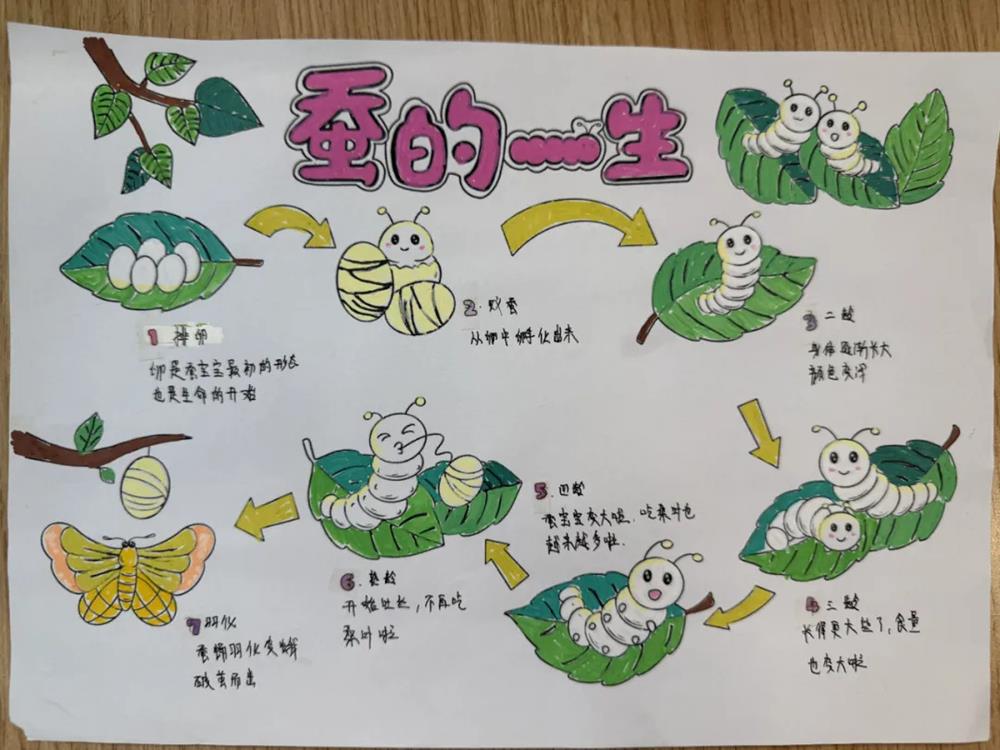 蚕的一生
1 排卵
卵是蚕宝宝最初的形态
也是生命的开始
2.蚁蚕
从卵中孵化出来
3 二龄
身体逐渐长大
颜色变
4 三龄
长得更大些了,食量
也变大啦
5.四龄
蚕宝宝变大啦,吃桑叶也
越来越多啦.
6.熟龄
开始吐丝,不再吃
桑叶啦
7 羽化
蚕蛹羽化变蛾
破茧而出